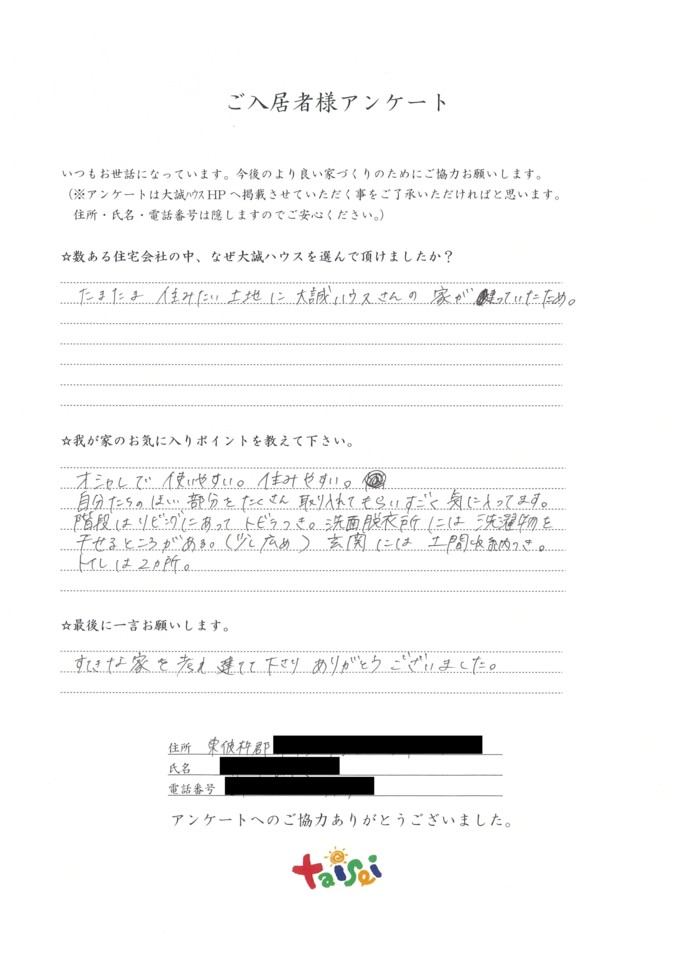 ご入居者様アンケート
いつもお世話になっています。今後のより良い家づくりのためにご協力お願いします。
(※アンケートは大誠ハウスHPへ掲載させていただく事をご了承いただければと思います。
住所・氏名・電話番号は隠しますのでご安心ください。)
☆数ある住宅会社の中、なぜ大誠ハウスを選んで頂けましたか？
たまたま 住みたい土地に大誠ハウスさんの家が建っていたため。
☆我が家のお気に入りポイントを教えて下さい。
オシャレで 使いやすい。住みやすい。
自分たちのほしい部分をたくさん取り入れてもらいすごく気に入ってます。
階段はリビングにあってトビラつき。洗面脱衣所には洗濯物を
干せるところがある。(少し広め) 玄関には土間収納つき。
トイレは2カ所。
☆最後に一言お願いします。
すてきな家を考え建てて下さりありがとうございました。
住所 東彼杵郡
氏名
電話番号
アンケートへのご協力ありがとうございました。
taisei